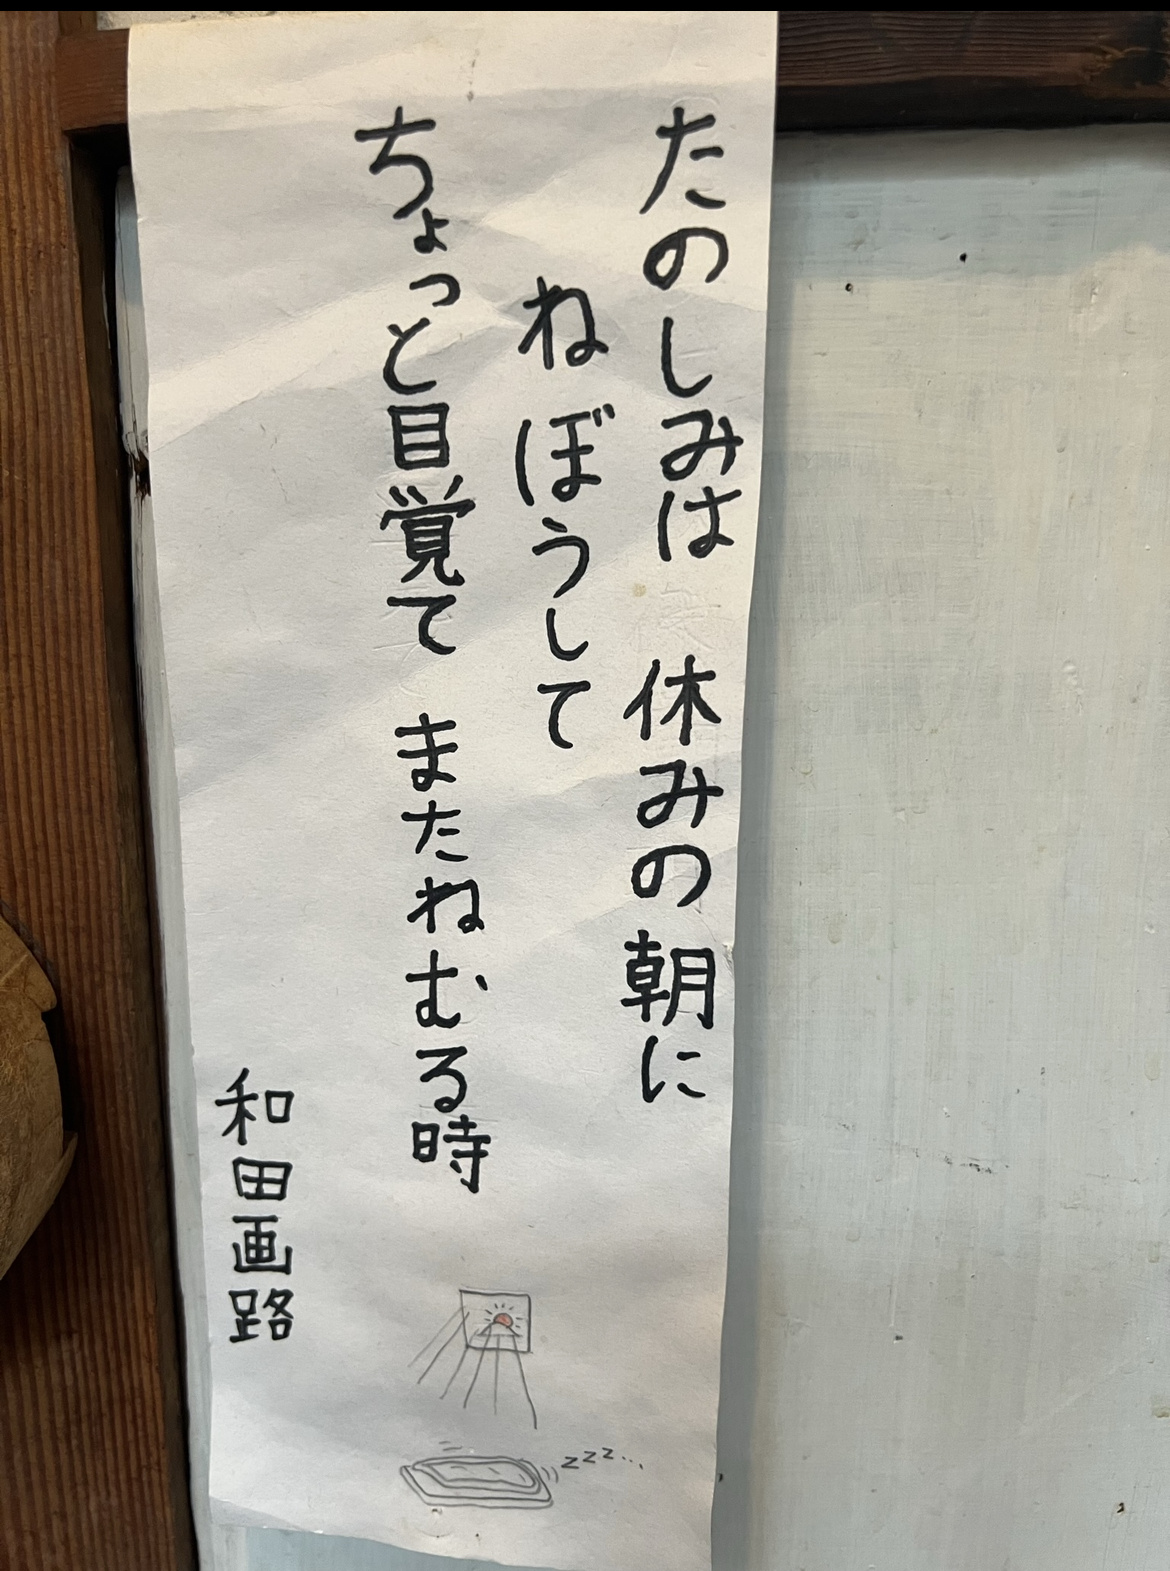 たのしみは 休みの朝に
ねぼうして
ちょっと目覚て またねむる時
和田画路
zzz...